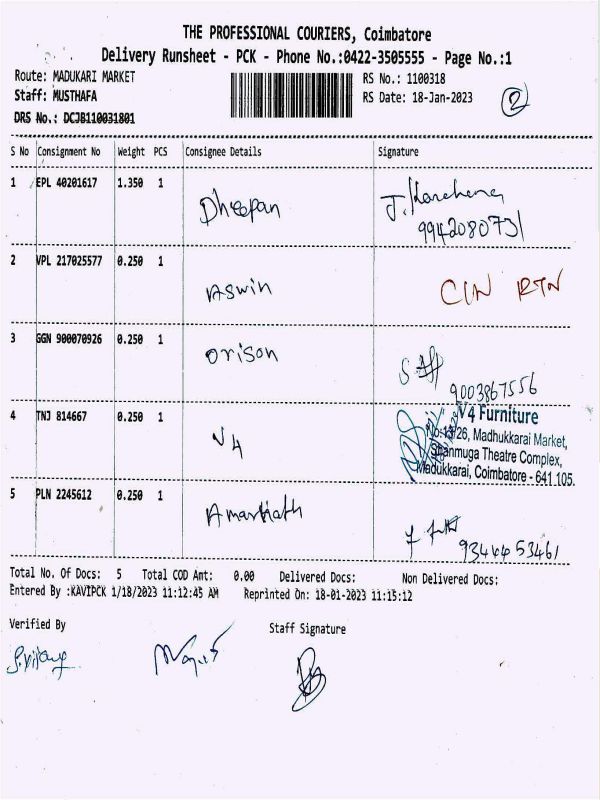 THE PROFESSIONAL COURIERS, Coimbatore
Delivery Runsheet - PCK - Phone No.:0422-3505555 - Page No.:1
Route: MADUKARI MARKET RS No.: 1100318
Staff: MUSTHAFA RS Date: 18-Jan-2023 2
DRS No.: DCJB110031801
S No Consignment No Weight PCS Consignee Details Signature
1 EPL 40201617 1.350 1 Dheepan
9942080731
2 VPL 217025577 0.250 1 Aswin RTN
3 GGN 900070926 0.250 1 Orison
9003867556
4 TNJ 814667 0.250 1 V4
V4 Furniture
26, Madhukkarai Market,
Shanmuga Theatre Complex,
Madukkarai, Coimbatore - 641 105.
5 PLN 2245612 0.250 1
9344453461
Total No. Of Docs: 5 Total COD Amt: 0.00 Delivered Docs: Non Delivered Docs:
Entered By :KAVIPCK 1/18/2023 11:12:45 AM Reprinted On: 18-01-2023 11:15:12
Verified By Staff Signature